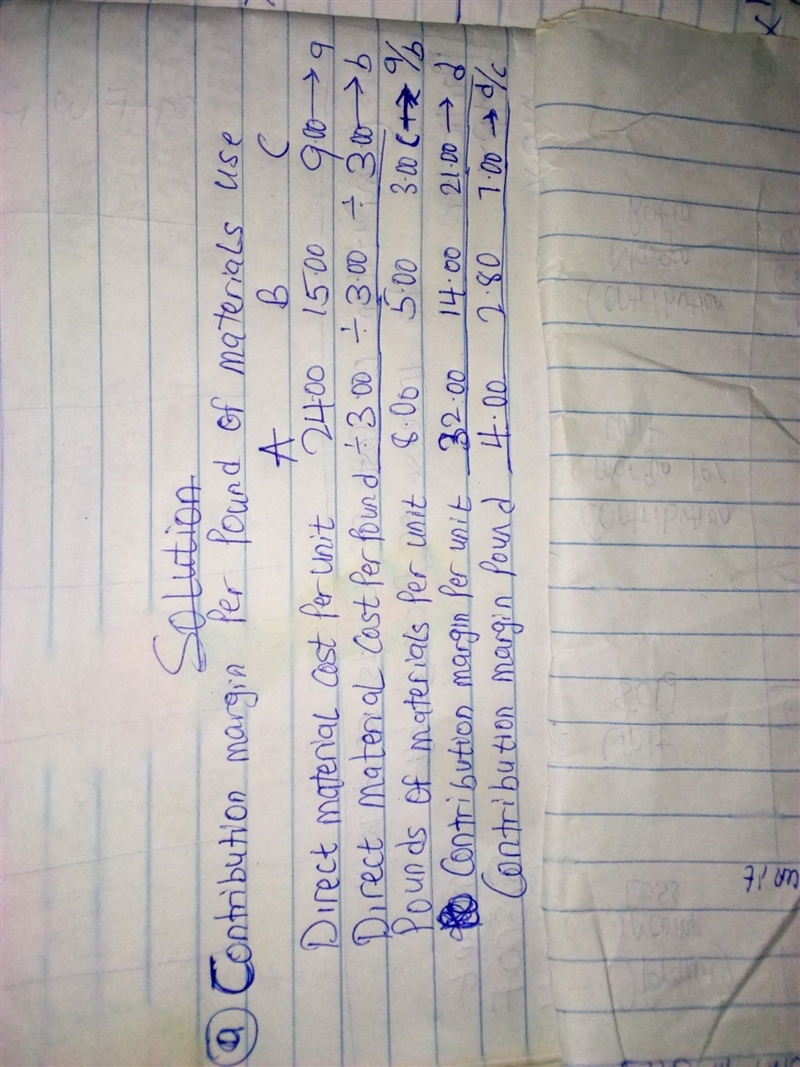 Solution
(a) Contribution margin per pound of materials use
A B C
Direct material cost per unit 24.00 15.00 9.00 → a
Direct material cost per pound ÷ 3.00 ÷ 3.00 ÷ 3.00 → b
Pounds of materials per unit 8.00 5.00 3.00 c → a/b
Contribution margin per unit 32.00 14.00 21.00 → d
Contribution margin pound 4.00 2.80 7.00 → d/c
unit